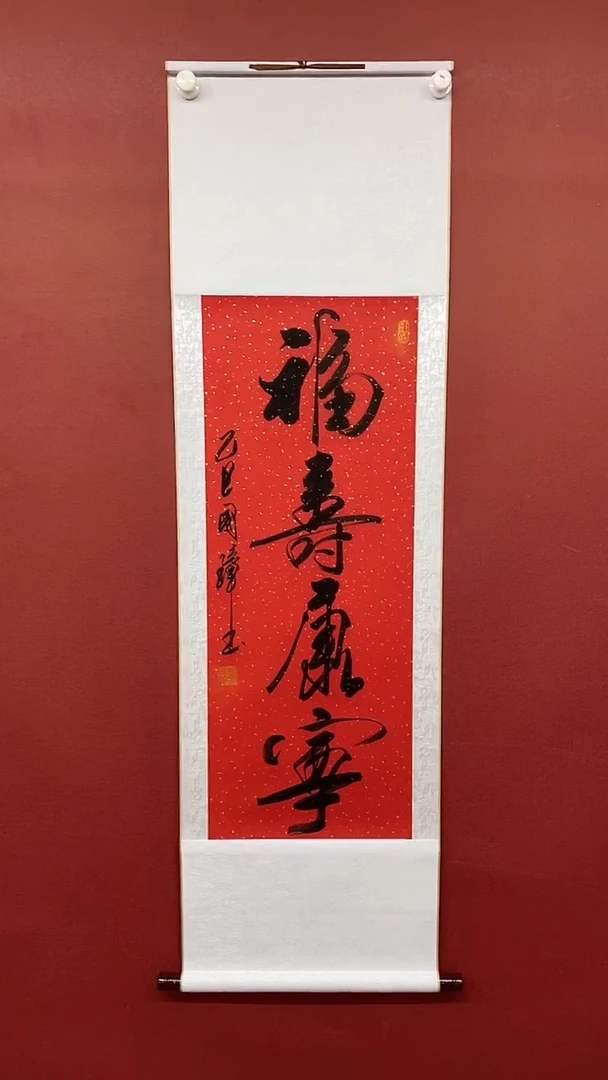 福壽康寧
乙巳國璋書